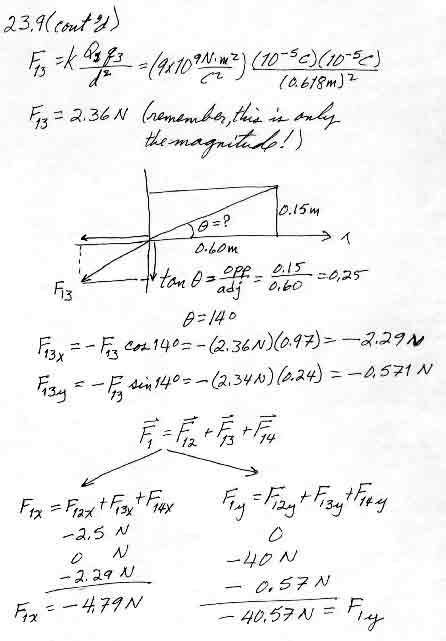 23.9 (cont'd)
F₁₃ = k q₁q₃/d² = (9x10⁹ N·m²/C²) (10⁻⁵C)(10⁻⁵C)/(0.618m)²
F₁₃ = 2.36 N (remember, this is only
the magnitude!)
0.15m
θ=?
0.60m
x
F₁₃
tan θ = opp/adj = 0.15/0.60 = 0.25
θ = 14°
F₁₃ₓ = -F₁₃ cos 14° = -(2.36N)(0.97) = -2.29N
F₁₃y = -F₁₃ sin 14° = -(2.34N)(0.24) = -0.571N
F⃗₁ = F⃗₁₂ + F⃗₁₃ + F⃗₁₄
F₁ₓ = F₁₂ₓ + F₁₃ₓ + F₁₄ₓ
-2.5 N
0 N
-2.29 N
F₁ₓ = -4.79 N
F₁y = F₁₂y + F₁₃y + F₁₄y
0
-40 N
- 0.57 N
- 40.57 N = F₁y